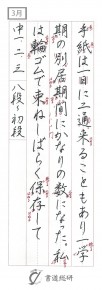 3月
手紙は日に二通来ることもあり一学
期の別居期間にかなりの数になった。私
は輪ゴムで束ねしばらく保存して
中一・二・三 八段〜初段
書道総研